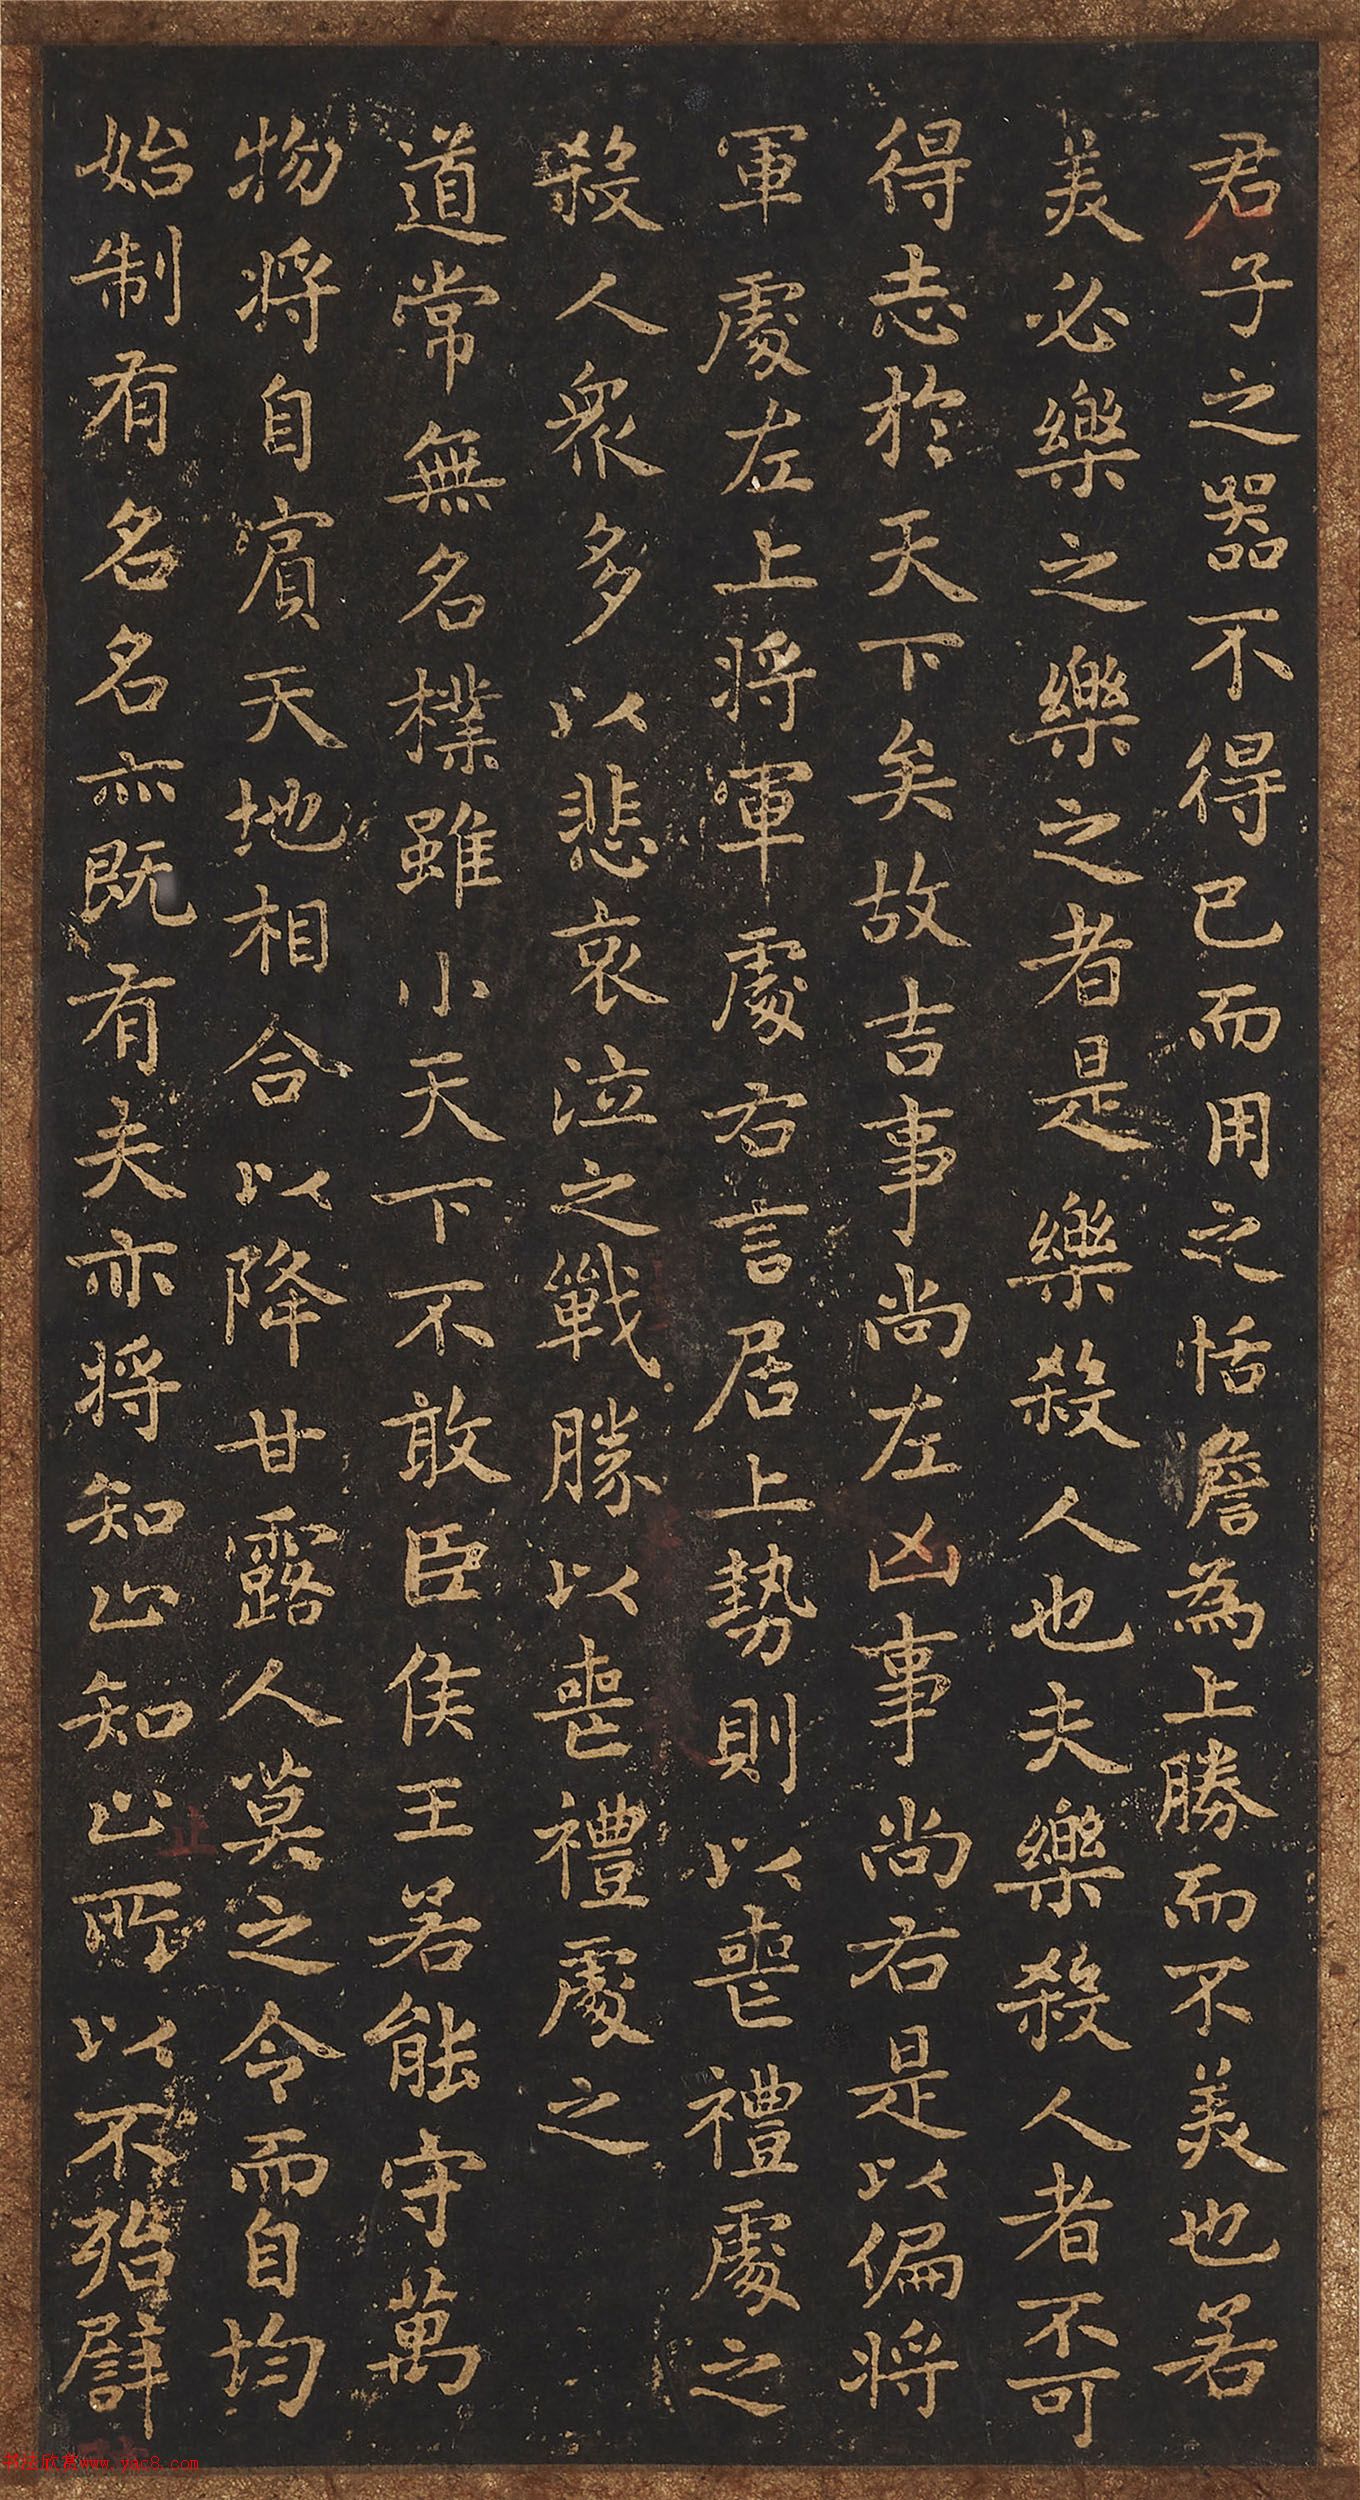 君子之器不得已而用之恬詹為上勝而不美也若
美必樂之樂之者是樂殺人也夫樂殺人者不可
得志於天下矣故吉事尚左凶事尚右是以偏將
軍處左上將軍處右言居上勢則以喪禮處之
殺人眾多以悲哀泣之戰勝以喪禮處之
道常無名樸雖小天下不敢臣侯王若能守萬
物將自賓天地相合以降甘露人莫之令而自均
始制有名名亦既有夫亦將知止知止所以不殆譬
止
书法欣赏www.yac8.com